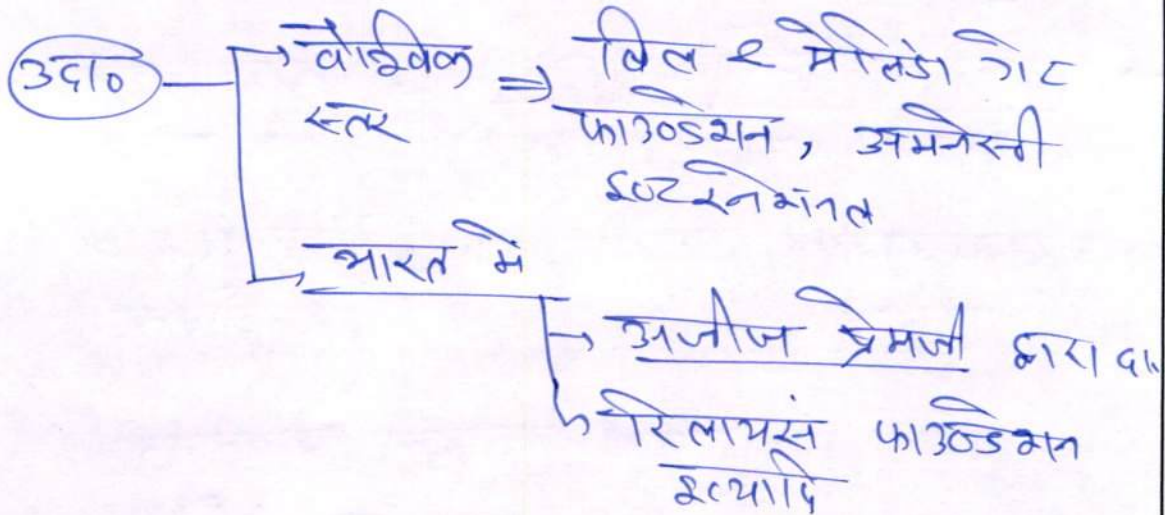 उदा० → वैश्विक ⇒ बिल २ मेलिंडा गेट
स्तर फाउण्डेशन, अमनेस्ती
इण्टरनेशंनल
→ भारत में
→ अजीज प्रेमजी द्वारा दा
→ रिलायंस फाउण्डेशन
इत्यादि